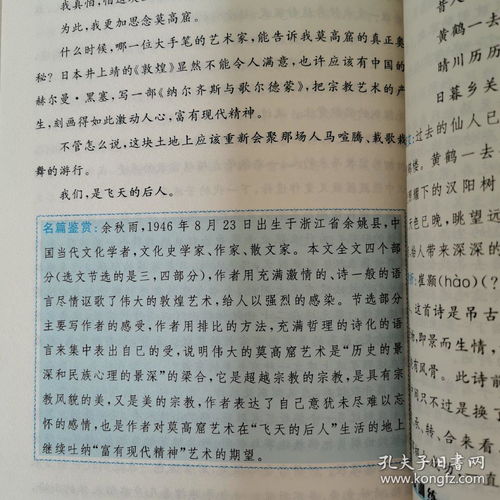 为此,我更加思念莫高窟。
什么时候,哪一位大手笔的艺术家,能告诉我莫高窟的真正奥
秘?日本井上靖的《敦煌》显然不能令人满意,也许应该有中国的
赫尔曼·黑塞,写一部《纳尔齐斯与歌尔德蒙》,把宗教艺术的产
生,刻画得如此激动人心,富有现代精神。
不管怎么说,这块土地上应该重新会聚那场人马喧腾、载歌载
舞的游行。
我们,是飞天的后人。
名篇鉴赏:余秋雨,1946年8月23日出生于浙江省余姚县,中
国当代文化学者,文化史学家、作家、散文家。本文全文四个部
分(选文节选的是三,四部分),作者用充满激情的、诗一般的语
言尽情讴歌了伟大的敦煌艺术,给人以强烈的感染。节选部分
主要写作者的感受,作者用排比的方法,充满哲理的诗化的语
言来集中表出自己的受,说明伟大的莫高窟艺术是“历史的景
深和民族心理的景深”的梁合,它是超越宗教的宗教,是具有宗
教风貌的美,又是美的宗教,作者表达了自己意犹未尽难以忘
怀的感情,也是作者对莫高窟艺术在“飞天的后人”生活的地上
继续吐纳“富有现代精神”艺术的期望。
黄鹤一去
晴川历历
日暮乡关
过去的仙人已
楼。黄鹤一去
耀下的汉阳树
天色已晚,眺望远
给人带来深深的
崔颢(hào)(?
这首诗是吊古
,即景而生情,
有风骨。此诗前
只不过是换了
、转、合来看,
孔夫子旧书网